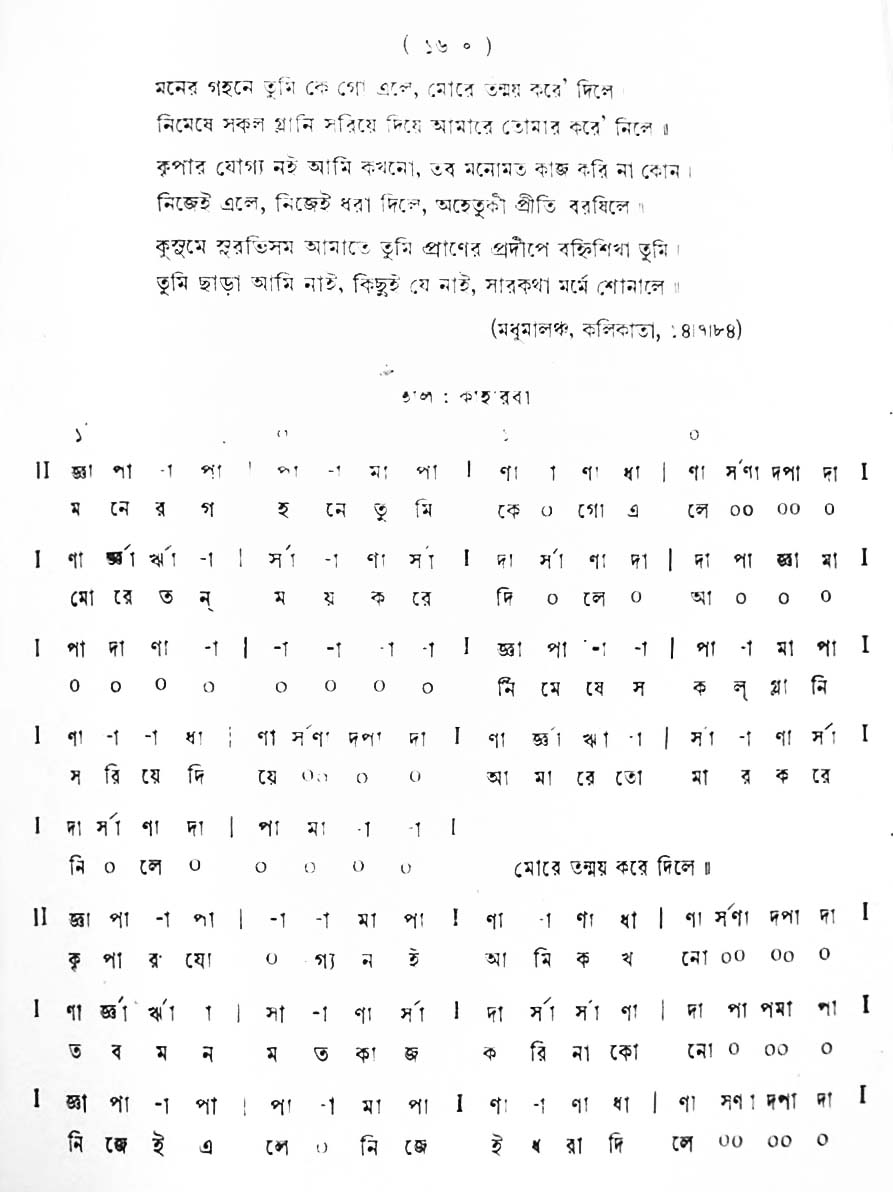 ( ১৬০ )
মনের গহনে তুমি কে গো এলে, মোরে তন্ময় করে' দিলে ।
নিমেষে সকল গ্লানি সরিয়ে দিয়ে আমারে তোমার করে' নিলে ॥
কৃপার যোগ্য নই আমি কখনো, তব মনোমত কাজ করি না কোন ।
নিজেই এলে, নিজেই ধরা দিলে, অহেতুকী প্রীতি বরষিলে ॥
কুসুমে সুরভিসম আমাতে তুমি প্রাণের প্রদীপে বহ্নিশিখা তুমি ।
তুমি ছাড়া আমি নাই, কিছুই যে নাই, সারকথা মর্মে শোনালে ॥
(মধুমালঞ্চ, কলিকাতা, ১৪।৭।৮৪)
তাল : কাহারবা
১´ ০ ১ ০
II জ্ঞা পা -া পা । পা -া মা পা I ণা া ণা ধা | ণা র্সণা দপা দা I
ম নে র গ হ নে তু মি কে ০ গো এ লে ০০ ০০ ০
I ণা র্জ্ঞা র্ঋা -া | র্সা -া ণা র্সা I দা র্সা ণা দা | দা পা জ্ঞা মা I
মো রে ত ন্ ম য় ক রে দি ০ লে ০ আ ০ ০ ০
I পা দা ণা -া | -া -া -া -া I জ্ঞা পা -া -া | পা -া মা পা I
০ ০ ০ ০ ০ ০ ০ ০ নি মে ষে স ক ল্ গ্লা নি
I ণা -া -া ধা | ণা র্সণা দপা দা I ণা র্জ্ঞা ঋা -া | র্সা -া ণা র্সা I
স রি য়ে দি য়ে ০০ ০ ০ আ মা রে তো মা র ক রে
I দা র্সা ণা দা | পা মা -া -া I
নি ০ লে ০ ০ ০ ০ ০ মোরে তন্ময় করে দিলে ॥
II জ্ঞা পা -া পা | -া -া মা পা I ণা -া ণা ধা | ণা র্সণা দপা দা I
কৃ পা র যো ০ গ্য ন ই আ মি ক খ নো ০০ ০০ ০
I ণা র্জ্ঞা র্ঋা া | সা -া ণা র্সা I দা র্সা র্সা ণা | দা পা পমা পা I
ত ব ম ন ম ত কা জ ক রি না কো নো ০ ০০ ০
I জ্ঞা পা -া পা | পা -া মা পা I ণা -া ণা ধা | ণা সণা দপা দা I
নি জে ই এ লে ০ নি জে ই ধ রা দি লে ০০ ০০ ০